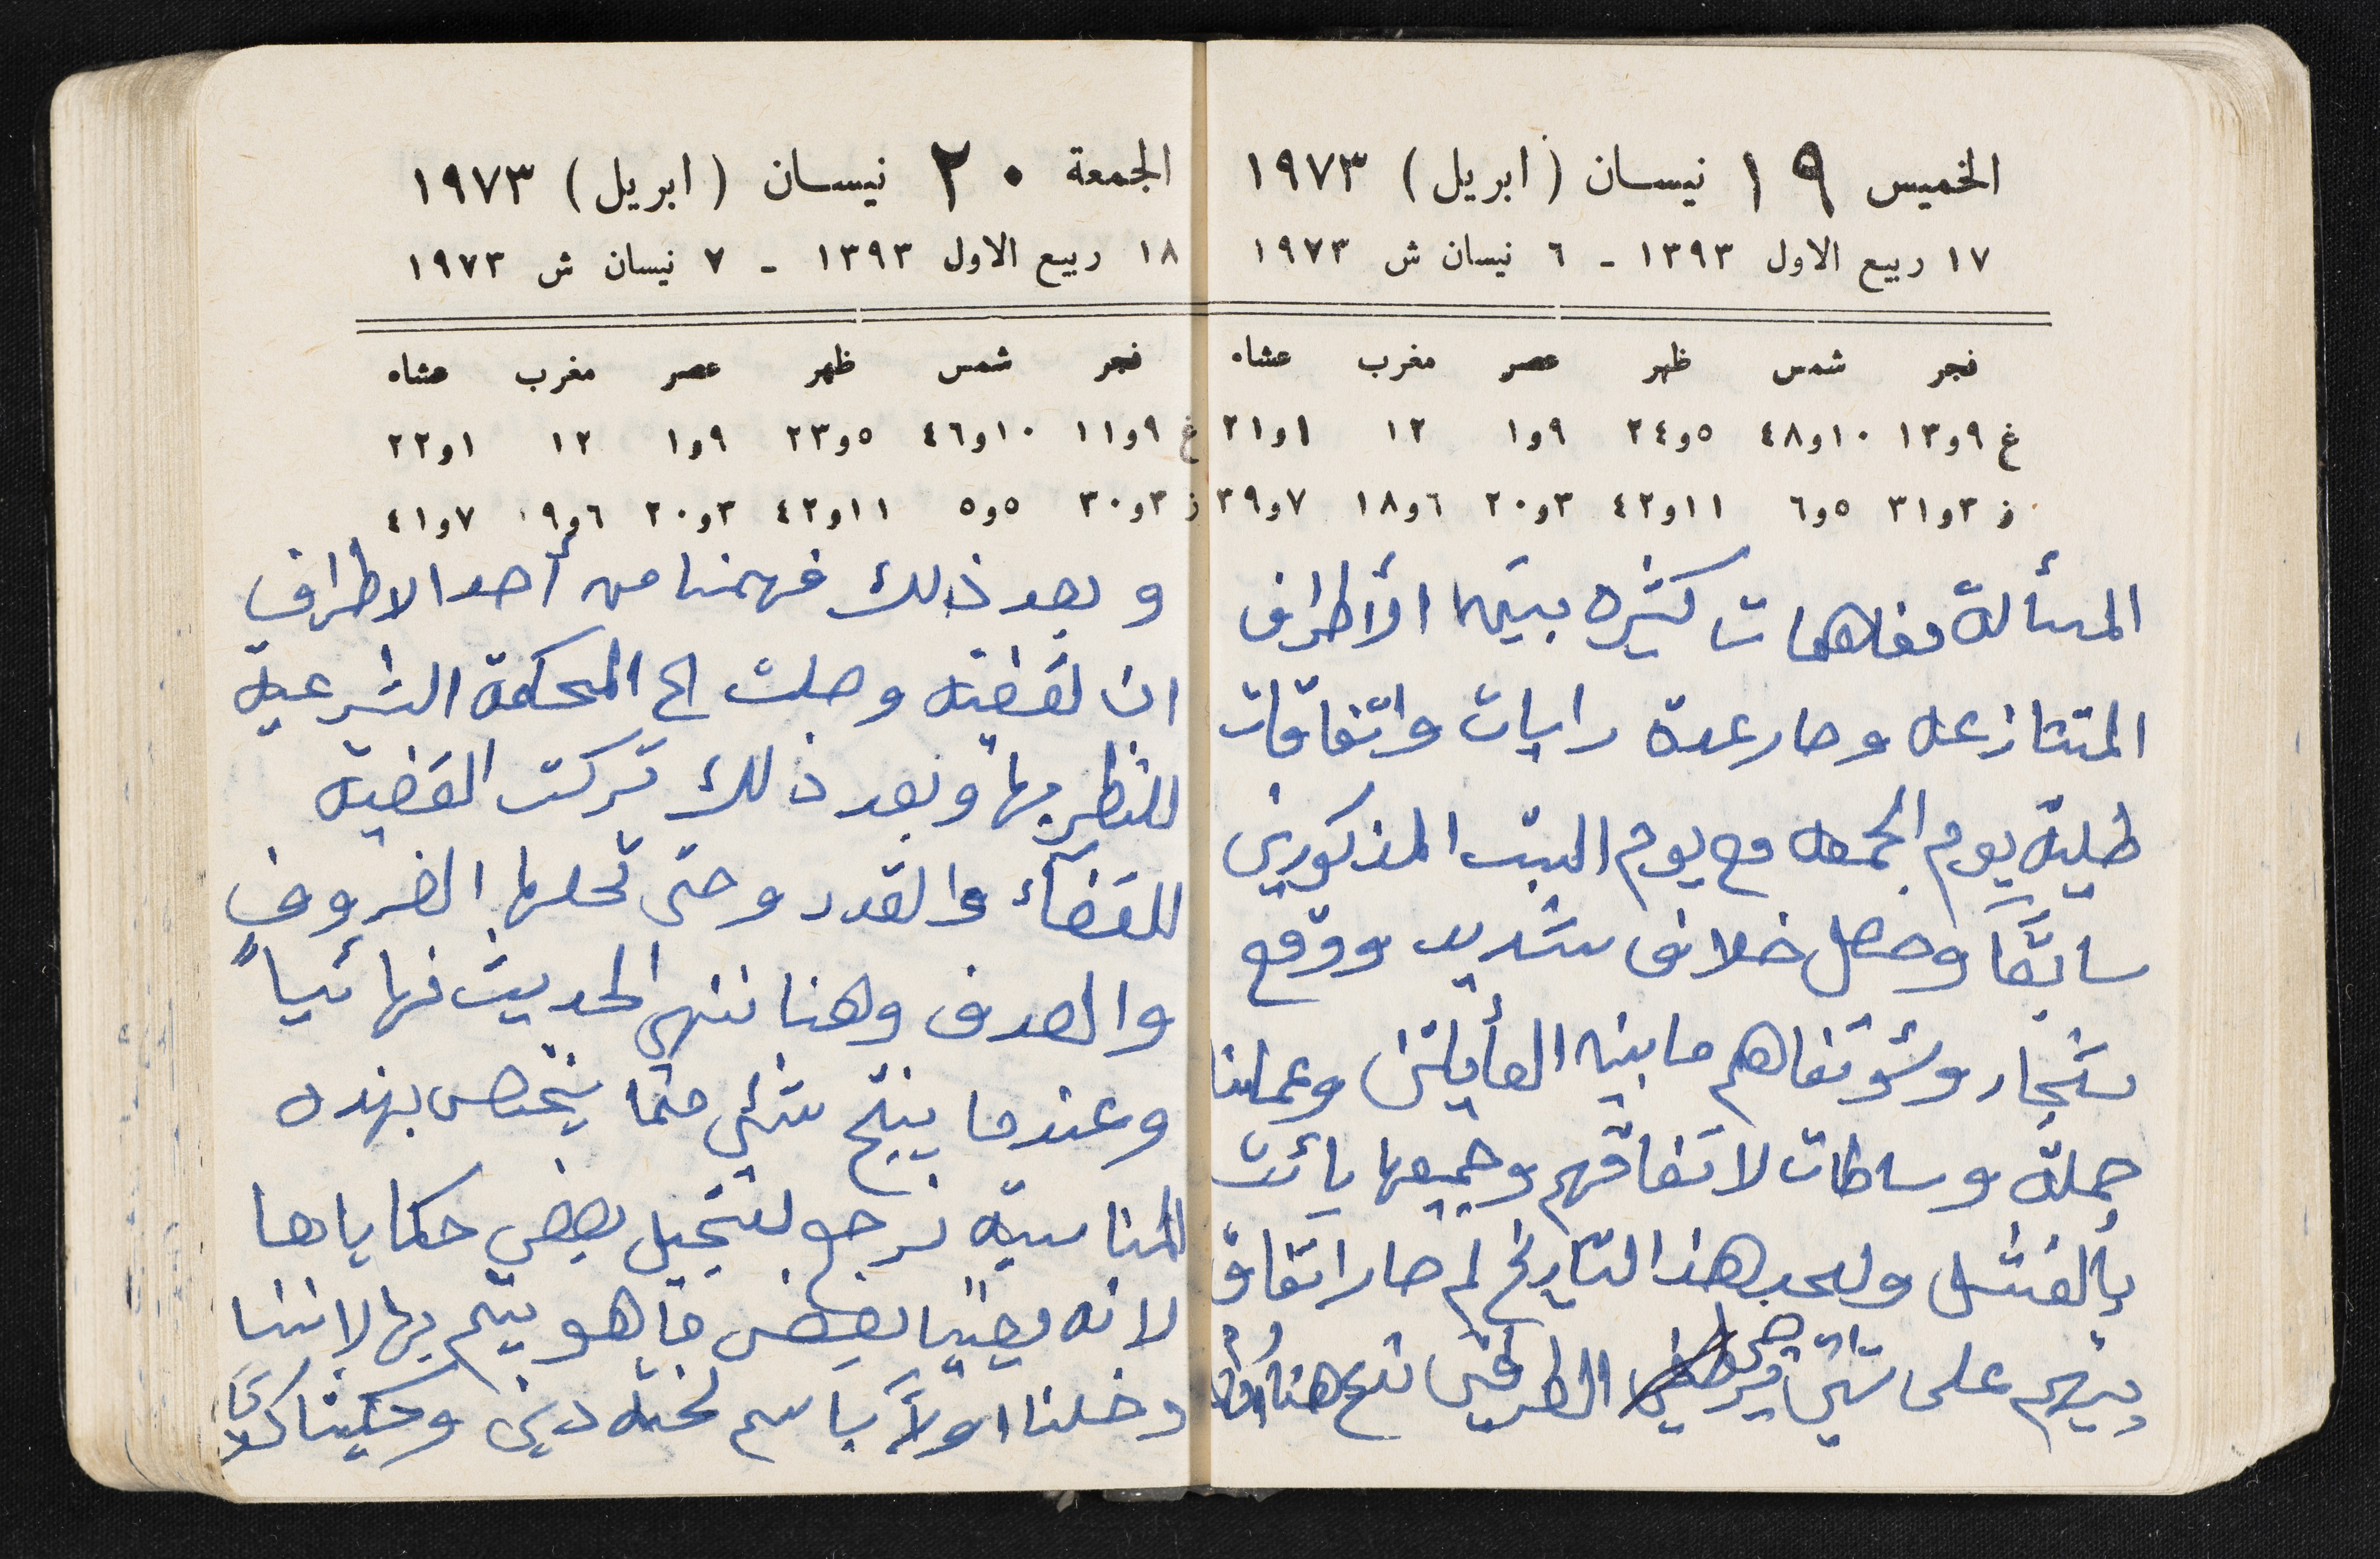 الخميس ١٩ نيسان (ابريل) ١٩٧٣
١٧ ربيع الاول ١٣٩٣ - ٦ نيسان ش ١٩٧٣
فجر شمس ظهر عصر مغرب عشاء
غ ٩و١٣ ١٠و٤٨ ٥و٢٤ ٩و١ ١٢ ١و٢١
ز ٣و٣١ ٥و٦ ١١و٤٢ ٣و٢٠ ٦و١٨ ٧و٣٩
المسألة مفاهمات كثيره بين الأطراف
المتنازعه وصار عدة رايات واتفاقات
طيلة يوم الجمعه مع يوم السبت المذكورين
سابقاً وحصل خلاف شديد ووقع
شجار وسؤ تفاهم مابين العأيلتين وعملنا
جملة وساطات لاتفاقهم وجميعها بائت
بألفشل ولحد هذا التاريخ لم صار اتفاق
بينهم على شئي الطرفين
الجمعة ٢٠ نيسان (ابريل) ١٩٧٣
١٨ ربيع الاول ١٣٩٣ - ٧ نيسان ش ١٩٧٣
فجر شمس ظهر عصر مغرب عشاء
غ ٩و١١ ١٠و٤٦ ٥و٢٣ ٩و١ ١٢ ١و٢٢
ز ٣و٣٠ ٥و٥ ١١و٤٢ ٣و٢٠ ٦و١٩ ٧و٤١
وبعد ذلك فهمنا من أحد الاطراف
ان لقضيه وصلت الى المحكمة الشرعية
للنظر بها وبعد ذلك تركت القضيه
للقضآء والقدر وحتى تحلها الضروف
والصدف وهنا ننهي الحديث نهائياً
وعندما ينتج شئي مما يختص بهذه
المناسبة نرجع لنسجيل بعض حكاياها
لانه يعنينا بعض ما هو يتم بها لاننا
دخلنا اولاً باسم لجنة دين وحكينا